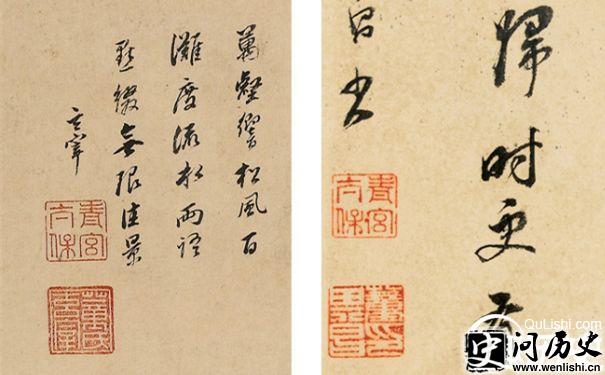 萬壑響松風百
灘度流水兩語
點綴無限佳景
玄宰
青宮太保
歸时更
昌書
青宮太保
QuLishi.com
问历史
www.wenlishi.cn